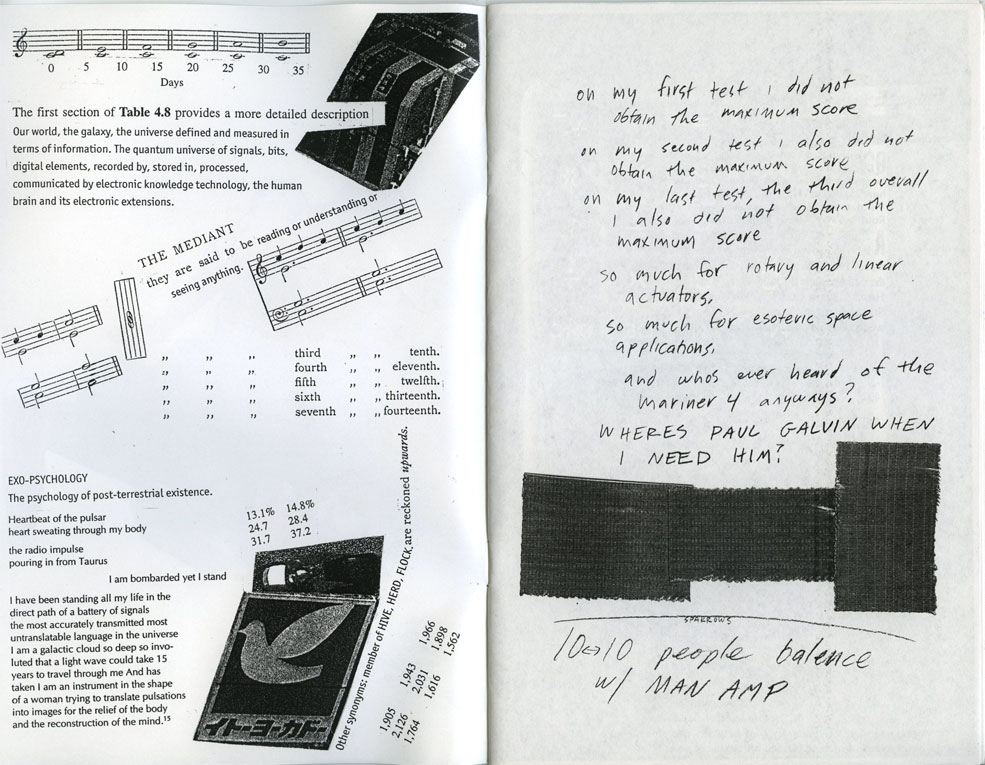 0 5 10 15 20 25 30 35
Days
The first section of Table 4.8 provides a more detailed description
Our world, the galaxy, the universe defined and measured in
terms of information. The quantum universe of signals, bits,
digital elements, recorded by, stored in, processed,
communicated by electronic knowledge technology, the human
brain and its electronic extensions.
THE MEDIANT
they are said to be reading or understanding or
seeing anything.
„ „ „ third „ „ tenth.
„ „ „ fourth „ „ eleventh.
„ „ „ fifth „ „ twelfth.
„ „ „ sixth „ „ thirteenth.
„ „ „ seventh „ „ fourteenth.
EXO-PSYCHOLOGY
The psychology of post-terrestrial existence.
Heartbeat of the pulsar
heart sweating through my body
the radio impulse
pouring in from Taurus
I am bombarded yet I stand
I have been standing all my life in the
direct path of a battery of signals
the most accurately transmitted most
untranslatable language in the universe
I am a galactic cloud so deep so invo-
luted that a light wave could take 15
years to travel through me And has
taken I am an instrument in the shape
of a woman trying to translate pulsations
into images for the relief of the body
and the reconstruction of the mind.15
13.1% 14.8%
24.7 28.4
31.7 37.2
イトーヨーカドー
Other synonyms: member of HIVE, HERD, FLOCK, are reckoned upwards.
1,905 1,943 1,966
2,126 2,031 1,898
1,764 1,616 1,562
on my first test i did not
obtain the maximum score
on my second test i also did not
obtain the maximum score
on my last test, the third overall
I also did not obtain the
maximum score
so much for rotary and linear
actuators,
so much for esoteric space
applications,
and whos ever heard of the
mariner 4 anyways?
WHERES PAUL GALVIN WHEN
I NEED HIM?
SPARROWS
10↔10 people balence
w/ MAN AMP